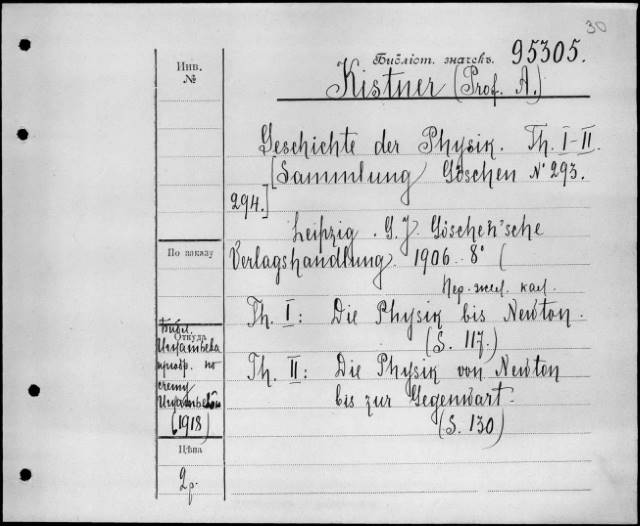 30
Библіот. значекъ. 95305.
Инв.
№
Kistner (Prof. A.)
Geschichte der Physik. Th. I–II.
[Sammlung Göschen № 293.
294.]
Leipzig. G. J. Göschen'sche
Verlagshandlung 1906. 8° (
Пер. жел. кал.
Th. I: Die Physik bis Newton.
(S. 117.)
Th. II: Die Physik von Newton
bis zur Gegenwart.
(S. 130)
По показу
Откуда
Библ.
Игнатьева
приобр. по
счету
(1918)
Цѣна
2 р.